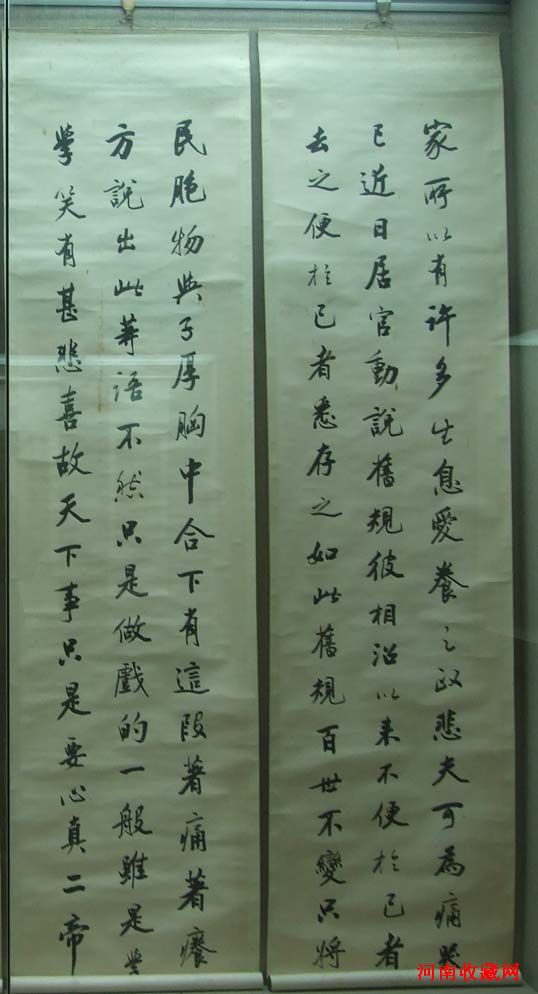 家所以有許多生息愛養之政悲夫可為痛哭
已近日居官動說舊規彼相沿以來不便於己者
去之便於己者悉存之如此舊規百世不變只將
民胞物與子厚胸中合下有這段著痛著癢
方說出此等語不然只是做戲的一般雖是學
學笑有甚悲喜故天下事只是要心真二帝
河南收藏网